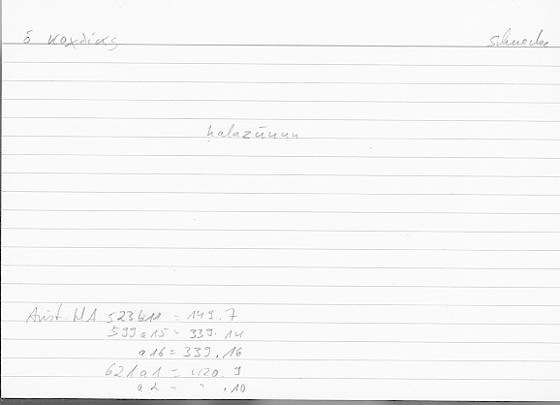 ὁ κοχλίας Schnecke
ḥalazūnun
Arist. HA 523b11 = 149.7
599a15 = 339.14
a16 = 339.16
621a1 = 420.9
a2 = " .10